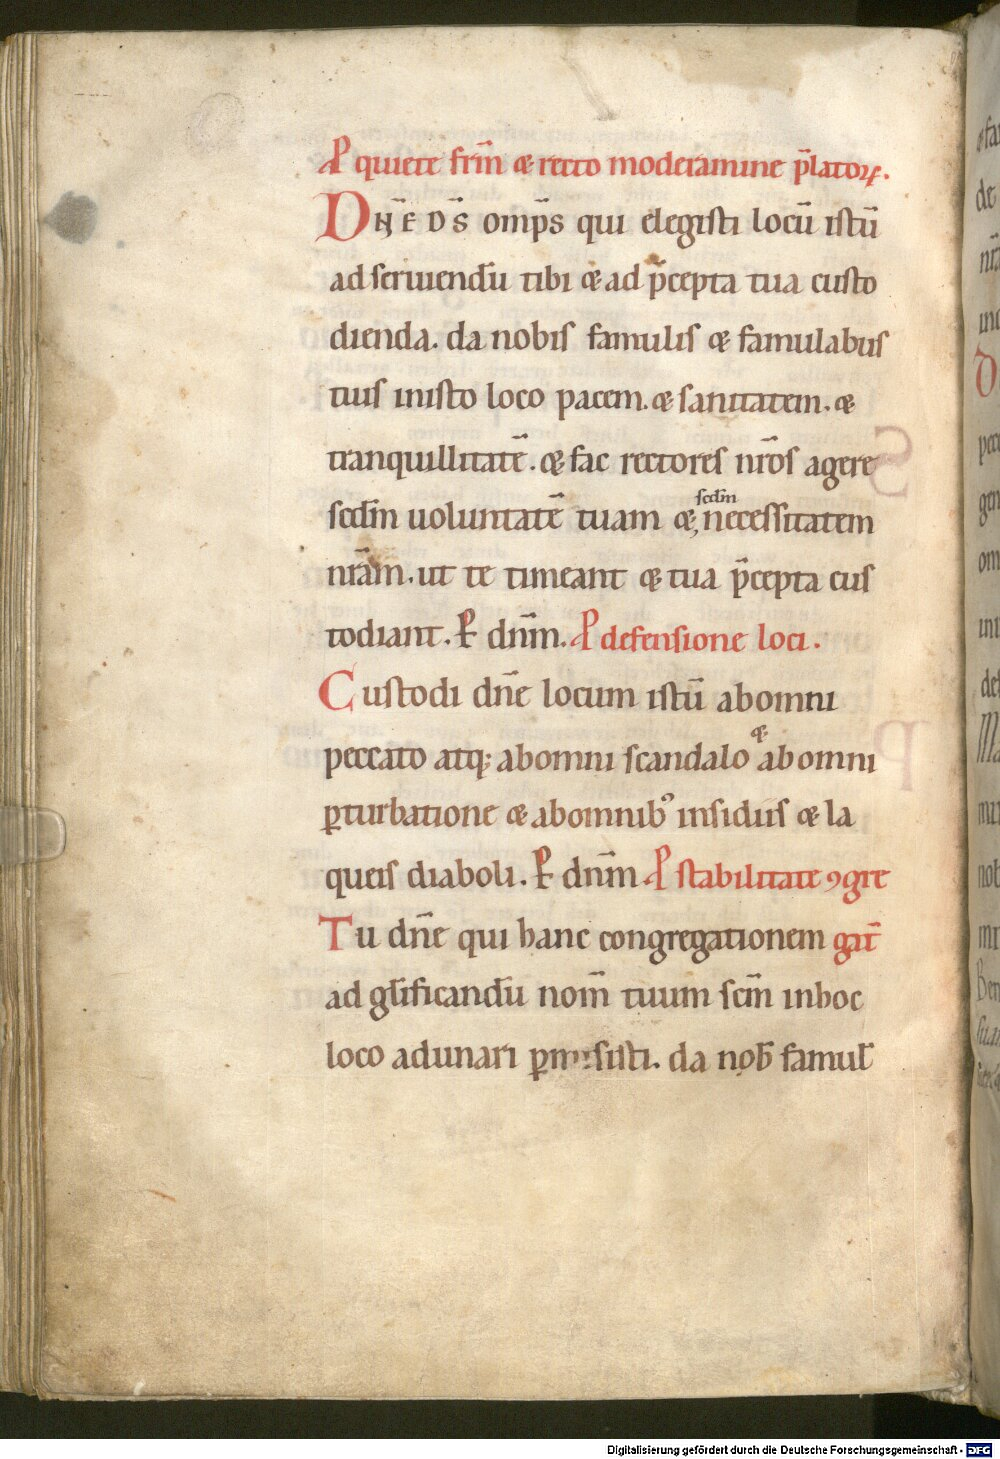 P quiete frm̄ & recto moderamine p̄latoꝝ.
DN̄E DS̄ omp̄s qui elegisti locū istū
ad seruiendū tibi & ad p̄cepta tua custo
dienda. da nobis famulis & famulabus
tuis inisto loco pacem. & sanitatem. &
tranquillitatē. & fac rectores nr̄os agere
scd̄m uoluntatē tuam &, scd̄m necessitatem
nr̄am. ut te timeant & tua p̄cepta cus
todiant. P dn̄m. P defensione loci.
Custodi dn̄e locum istū abomni
peccato atq; abomni scandalo & abomni
ꝑturbatione & abomnibꝰ insidiis & la
queis diaboli. P dn̄m P stabilitate ꝯgre
Tu dn̄e qui hanc congregationem gat̄
ad gl̄ificandū nom̄ tuum scm̄ inhoc
loco adunari ꝑmisisti. da nob̄ famul̄
Digitalisierung gefördert durch die Deutsche Forschungsgemeinschaft - DFG